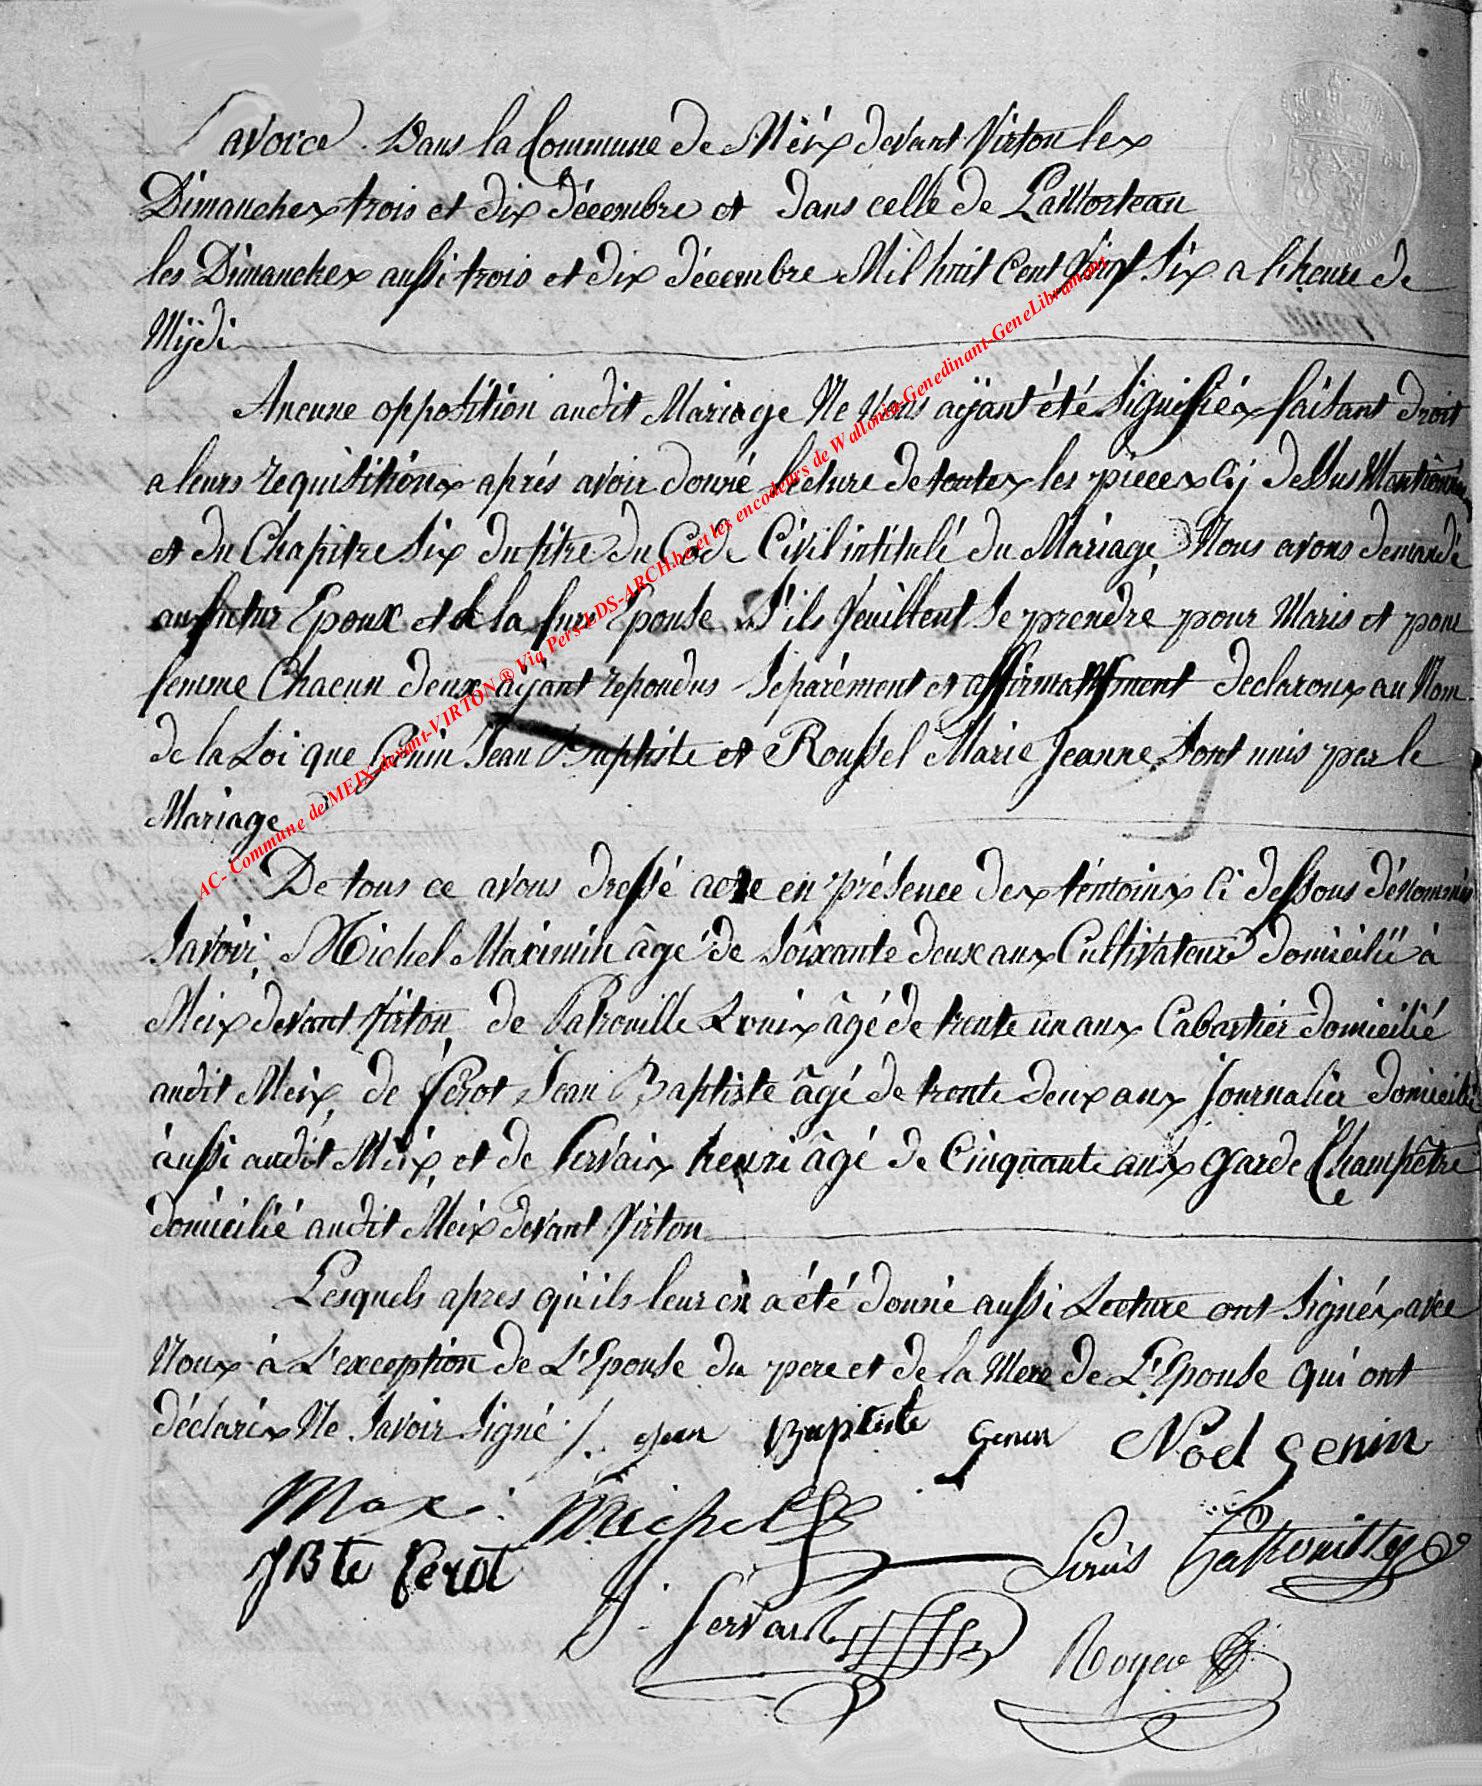 Savoire. Dans la Commune de Meix devant Virton les
Dimanches trois et dix décembre et dans celle de Lamorteau
les Dimanches aussi trois et dix décembre Mil huit Cent Vingt Six a l'heure de
Mijdi
Aucune opposition audit Mariage Ne Nous aÿant été Signifiées faisant droit
a leurs requisitions aprés avoir donné lecture de toutes les pièces Cij dessus Mentionnées
et du Chapitre Six du titre du Code Civil intitulé du Mariage, Nous avons demandé
au futur Epoux et a la future Epouse S'ils Veuillent Se prendre pour Maris et pour
femme Chacun deux aÿant repondus Séparément et affirmativement declarons au Nom
de la Loi que Genin Jean Baptiste et Roussel Marie Jeanne Sont unis par le
Mariage
De tous ce avons dressé acte en présence des témoins Ci dessous dénommés
Savoir, Michel Maximin âgé de Soixante deux ans Cultivateur domicilié à
Meix devant Virton, de Patrouille Louis âgé de trente un ans Cabartier domicilié
audit Meix, de ferot Jean Baptiste âgé de trente deux ans Journalier domicilié
aussi audit Meix, et de Servais henri âgé de Cinquante ans garde Champêtre
domicilié audit Meix devant Virton
Lesquels apres qu'ils leur en a été donné aussi Lecture ont Signés avec
Nous à L'exception de L'Epouse du pere et de la Mere de L'Epouse qui ont
déclarés Ne Savoir Signé /. jean Baptiste genin Noel genin
Max. Michel
JBte ferot Louis Patrouille
h. Servais Roger
AC- Commune de MEIX-devant-VIRTON ® Via Pers-LDS-ARCH.be et les encodeurs de Wallonia-Genedinant-GeneLibramont